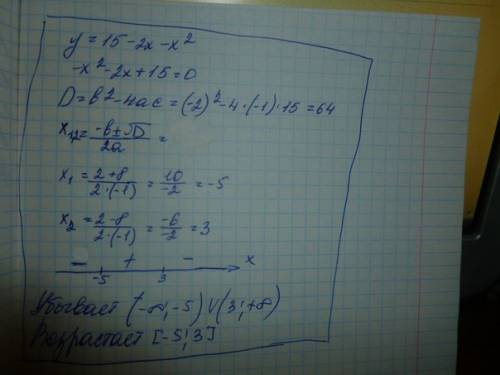 y = 15 - 2x - x²
-x² - 2x + 15 = 0
D = b² - 4ac = (-2)² - 4·(-1)·15 = 64
x₁,₂ = (-b ± √D)/(2a) =
x₁ = (2+8)/(2·(-1)) = 10/(-2) = -5
x₂ = (2-8)/(2·(-1)) = (-6)/(-2) = 3
- + - x
-5 3
Убывает (-∞; -5) ∪ (3; +∞)
Возрастает [-5; 3]